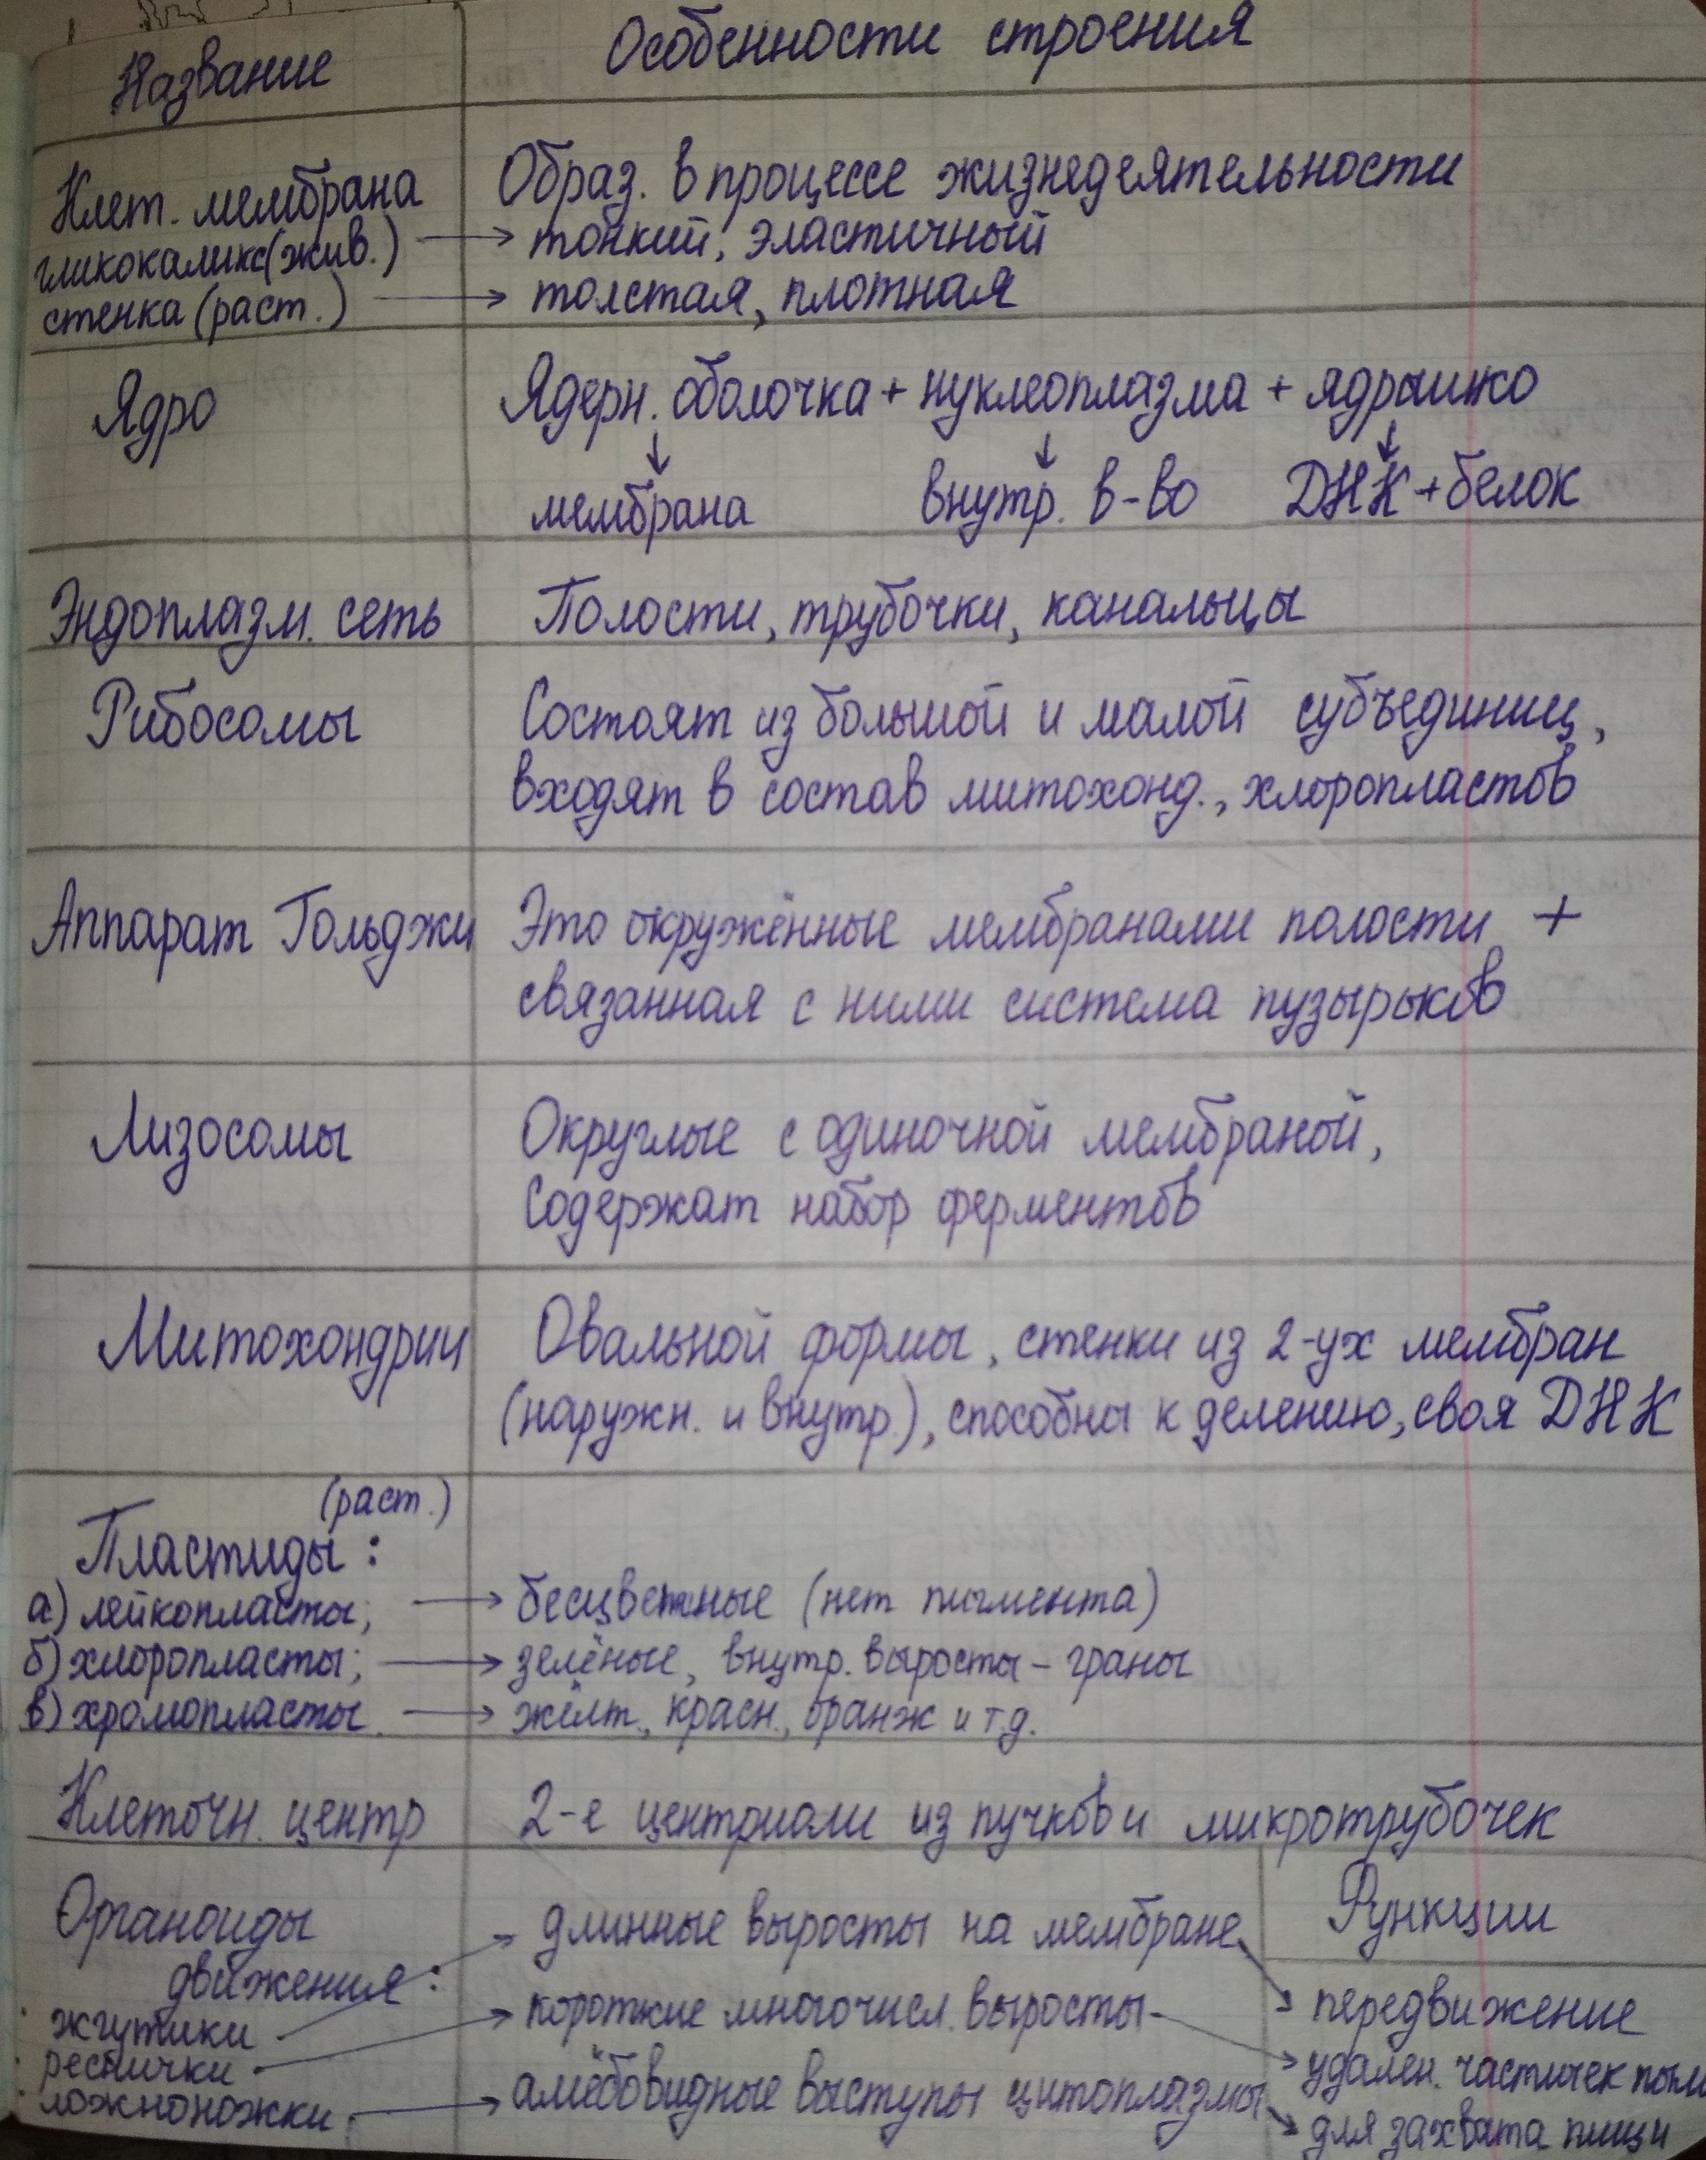 Название Особенности строения
Клет. мембрана Образ. в процессе жизнедеятельности
гликокаликс(жив.) → тонкий, эластичный
стенка (раст.) → толстая, плотная
Ядро Ядерн. оболочка + нуклеоплазма + ядрышко
↓ ↓ ↓
мембрана внутр. в-во ДНК + белок
Эндоплазм. сеть Полости, трубочки, канальцы
Рибосомы Состоят из большой и малой субъединиц,
входят в состав митохонд., хлоропластов
Аппарат Гольджи Это окружённые мембранами полости +
связанная с ними система пузырьков
Лизосомы Округлые с одиночной мембраной,
содержат набор ферментов
Митохондрии Овальной формы, стенки из 2-ух мембран
(наружн. и внутр.), способны к делению, своя ДНК
(раст.)
Пластиды:
а) лейкопласты; → бесцветные (нет пигмента)
б) хлоропласты; → зелёные, внутр. выросты – граны
в) хромопласты. → жёлт., красн., оранж и т.д.
Клеточн. центр 2-е центриоли из пучков и микротрубочек
Органоиды длинные выросты на мембране Функции
движения:
· жгутики короткие многочисл. выросты передвижение
· реснички удален. частичек пыли
· ложноножки → амёбовидные выступы цитоплазмы для захвата пищи